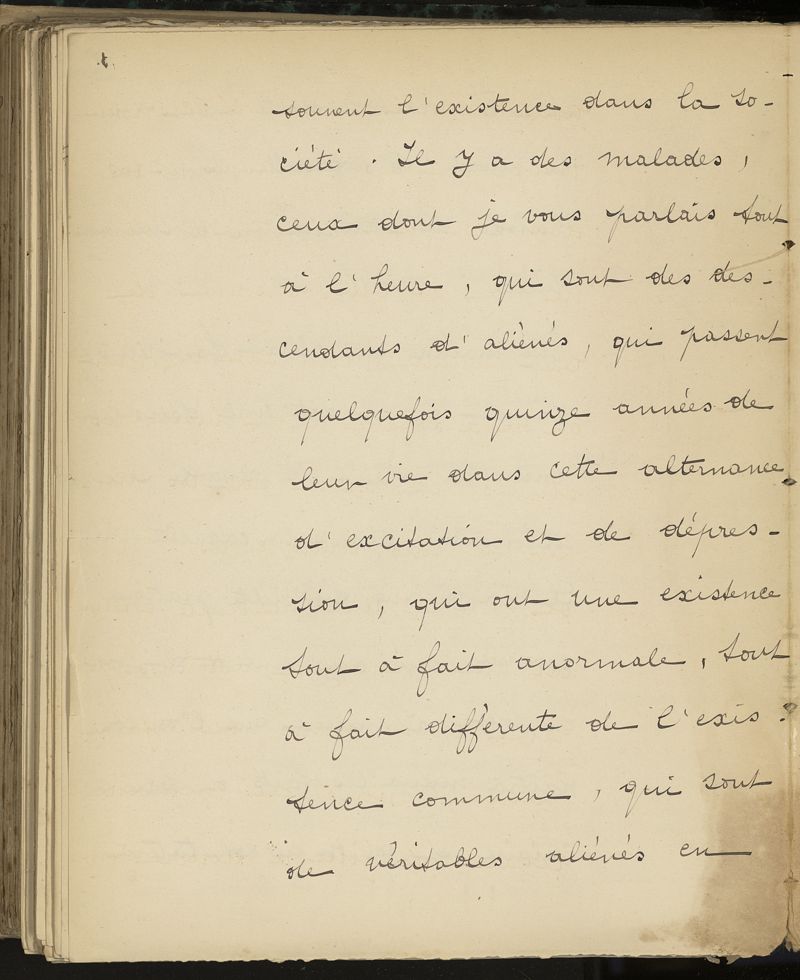 souvent l'existence dans la so-
ciété. Il y a des malades,
ceux dont je vous parlais tout
à l'heure, qui sont des des-
cendants d'aliénés, qui passent
quelquefois quinze années de
leur vie dans cette alternance
d'excitation et de dépres-
sion, qui ont une existence
tout à fait anormale, tout
à fait différente de l'exis-
tence commune, qui sont
de véritables aliénés en